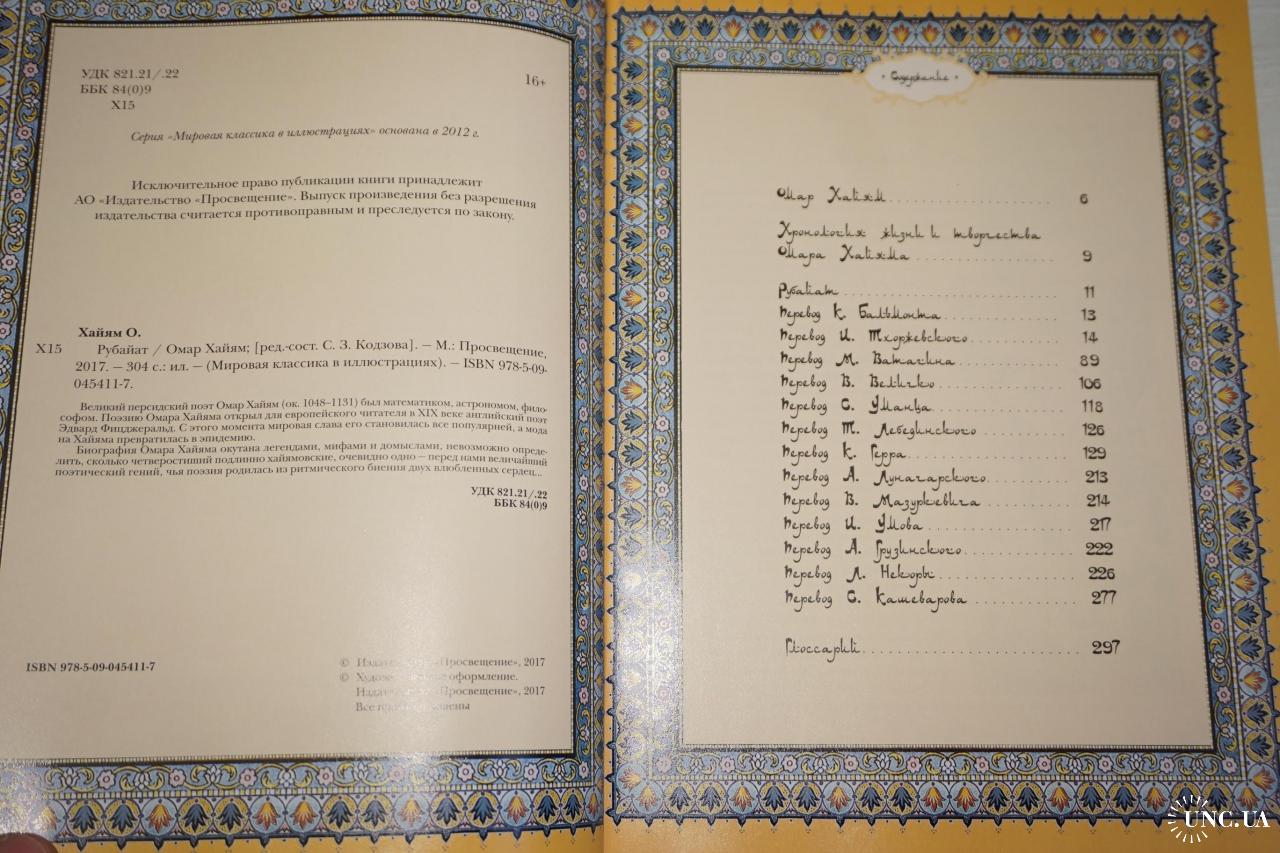 УДК 821.21/.22
ББК 84(0)9
Х15
16+
Серия «Мировая классика в иллюстрациях» основана в 2012 г.
Исключительное право публикации книги принадлежит
АО «Издательство «Просвещение». Выпуск произведения без разрешения
издательства считается противоправным и преследуется по закону.
Хайям О.
Х15 Рубайат / Омар Хайям; [ред.-сост. С. З. Кодзова]. — М.: Просвещение,
2017. — 304 с.: ил. — (Мировая классика в иллюстрациях). — ISBN 978-5-09-
045411-7.
Великий персидский поэт Омар Хайям (ок. 1048–1131) был математиком, астрономом, фило-
софом. Поэзию Омара Хайяма открыл для европейского читателя в XIX веке английский поэт
Эдвард Фицджеральд. С этого момента мировая слава его становилась все популярней, а мода
на Хайяма превратилась в эпидемию.
Биография Омара Хайяма окутана легендами, мифами и домыслами, невозможно опреде-
лить, сколько четверостиший подлинно хайямовские, очевидно одно — перед нами величайший
поэтический гений, чья поэзия родилась из ритмического биения двух влюбленных сердец...
УДК 821.21/.22
ББК 84(0)9
ISBN 978-5-09-045411-7
© «Просвещение», 2017
© оформление.
«Просвещение», 2017
Все
Содержание
Омар Хайям 6
Хронология жизни и творчества
Омара Хайяма 9
Рубайат 11
Перевод К. Бальмонта 13
Перевод И. Тхоржевского 14
Перевод М. Ватагина 89
Перевод В. Величко 106
Перевод С. Уманца 118
Перевод Т. Лебединского 126
Перевод К. Герра 129
Перевод А. Луначарского 213
Перевод В. Мазуркевича 214
Перевод И. Умова 217
Перевод А. Грузинского 222
Перевод Л. Некоры 226
Перевод С. Кашеварова 277
Глоссарий 297
UNC.UA